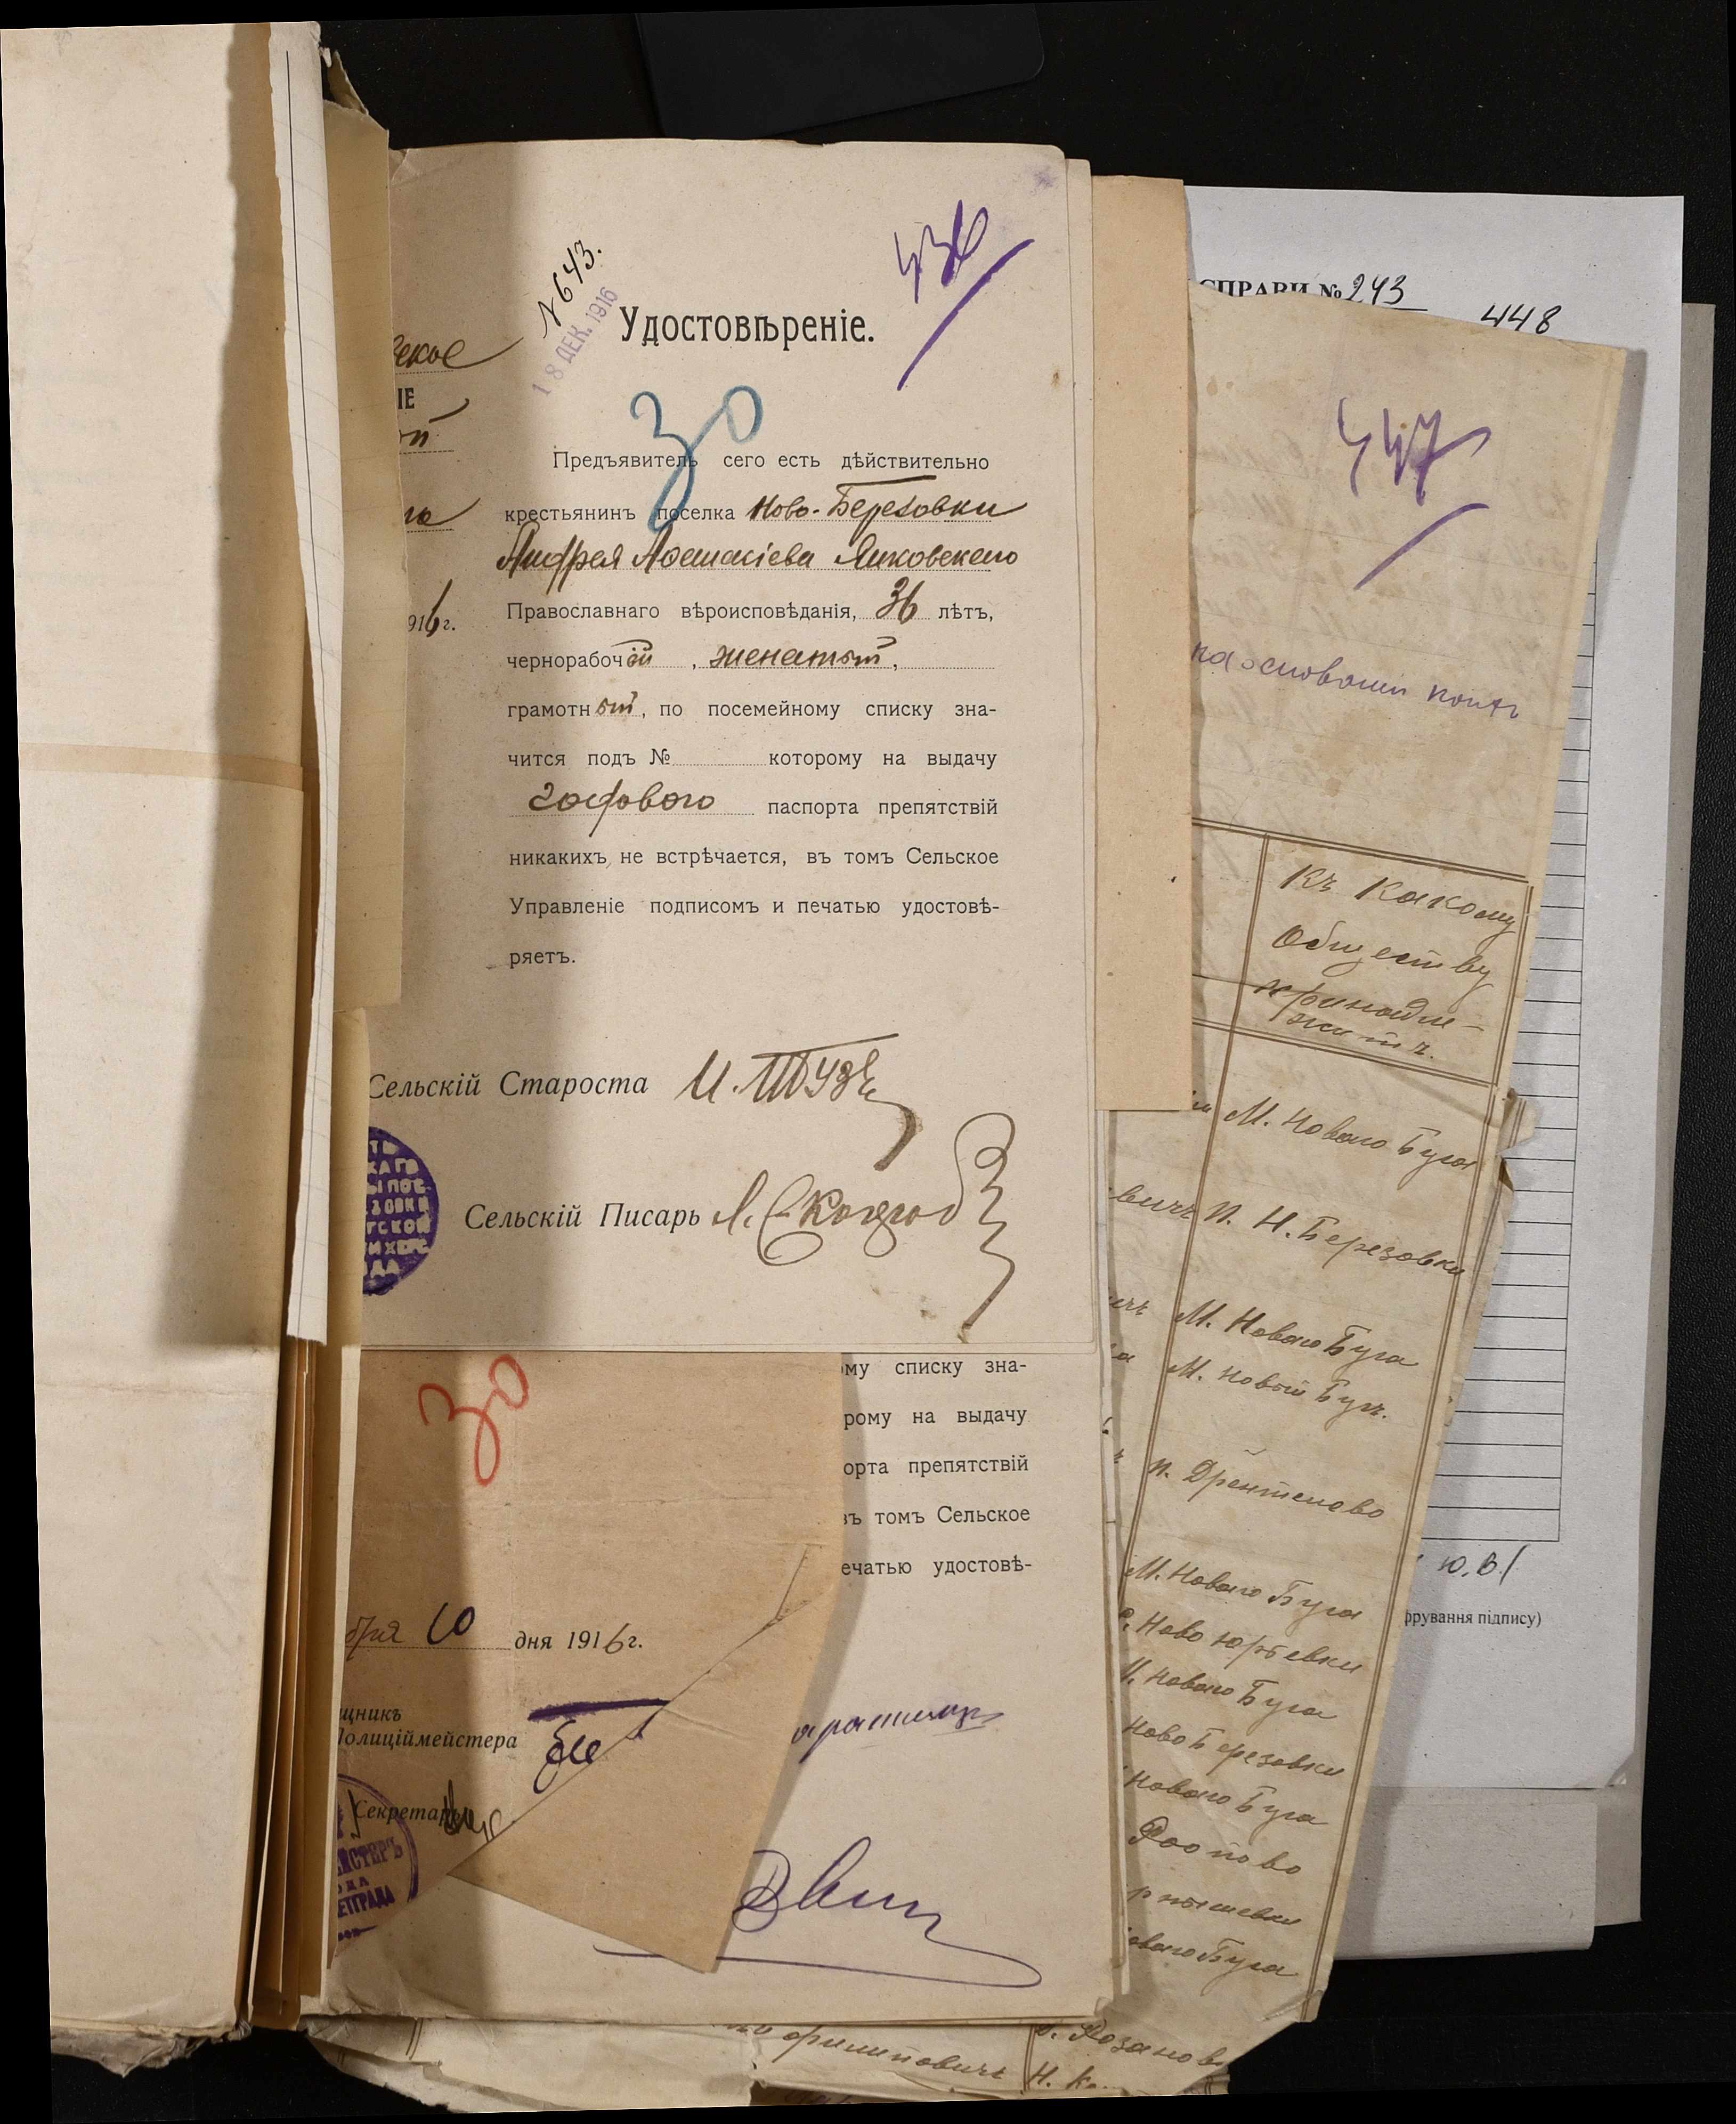 № 643.
18 ДЕК. 1916
436
Удостовѣреніе.
30
Предъявитель сего есть дѣйствительно
крестьянинъ поселка Ново-Березовки
Андрея Аѳанасіева Янковскаго
Православнаго вѣроисповѣданія, 36 лѣтъ,
чернорабочій, женатый,
грамотный, по посемейному списку зна-
чится подъ № которому на выдачу
годового паспорта препятствій
никакихъ не встрѣчается, въ томъ Сельское
Управленіе подписомъ и печатью удостовѣ-
ряетъ.
Сельскій Староста
Сельскій Писарь
ское
ІЕ
ой
на
916 г.
ТЬ
КАГО
Ы ПОС.
ЗОВКИ
ГСКОЙ
ДА
ому списку зна-
рому на выдачу
орта препятствій
въ томъ Сельское
ечатью удостовѣ-
30
бря 10 дня 1916 г.
щникъ
Полиціймейстера
Секретарь
ЙСТЕРЪ
ДА
ЕТГРАДА
СПРАВИ № 243
448
447
на основаніи
Къ какому
Обществу
принадле-
житъ.
М. Новаго Буга
вичъ П. Н. Березовки
ичъ М. Новаго Буга
М. Новый Бугъ.
п. Дрентелово
М. Новаго Буга
Ново Юрьевки
М. Новаго Буга
Ново Березовки
Новаго Буга
оваго Буга
Ю.В./
фрування підпису)
Филиповичъ